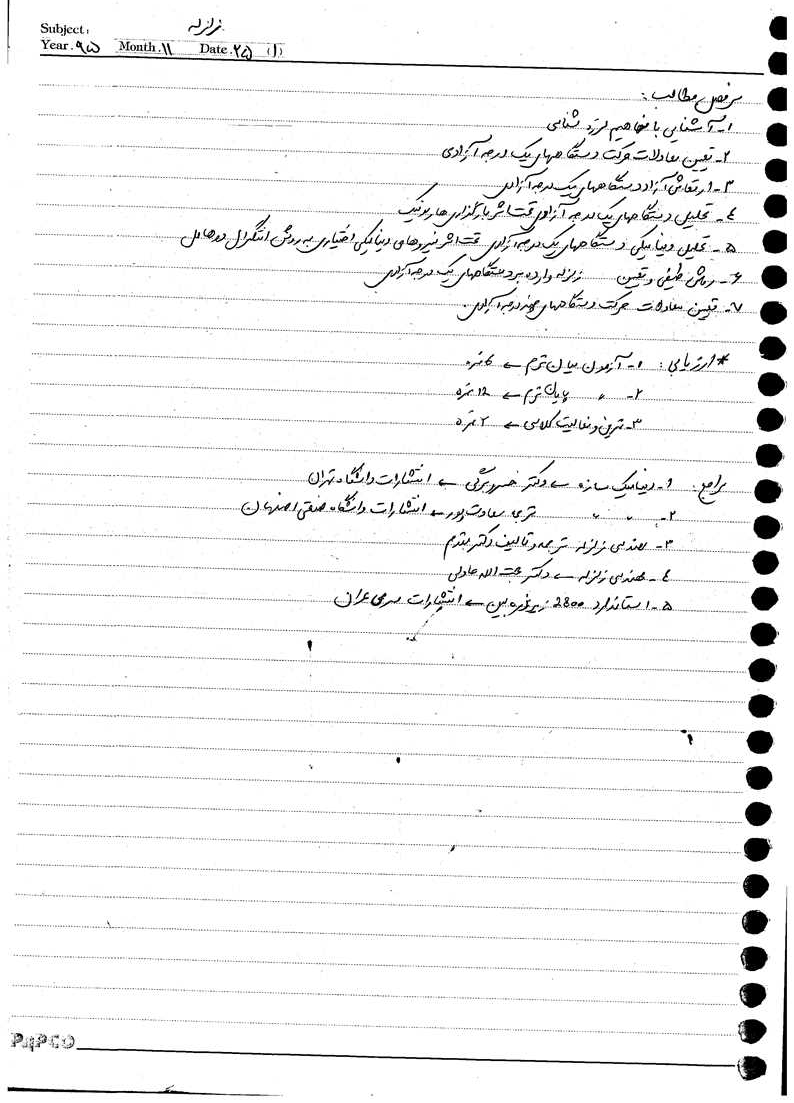 Subject: زلزله
Year. ۹۵ Month. ۱۱ Date. ۲۵ (۱)
سرفصل مطالب:
۱- آشنایی با مفاهیم لرزه شناسی
۲- تعیین معادلات حرکت دستگاههای یک درجه آزادی
۳- ارتعاش آزاد دستگاههای یک درجه آزادی
۴- تحلیل دستگاههای یک درجه آزادی تحت اثر بارگذاری هارمونیک
۵- تحلیل دینامیکی دستگاههای یک درجه آزادی تحت اثر نیروهای دینامیکی اختیاری به روش انتگرال دوهامل
۶- روش طیفی و تعیین زلزله وارده بر دستگاههای یک درجه آزادی
۷- تعیین معادلات حرکت دستگاههای چند درجه آزادی.
* ارزیابی: ۱- آزمون میان ترم ← ۶ نمره
۲- " پایان ترم ← ۱۲ نمره
۳- تمرین و فعالیت کلاسی ← ۲ نمره
مراجع: ۱- دینامیک سازه ← دکتر خسرو برگی ← انتشارات دانشگاه تهران
۲- " " ترجمه سعادت پور ← انتشارات دانشگاه صنعتی اصفهان
۳- مهندسی زلزله ترجمه و تالیف دکتر مقدم
۴- مهندسی زلزله ← دکتر حجت الله عادلی
۵- استاندارد 2800 زیر ذره بین ← انتشارات سری عمران
PAPCO